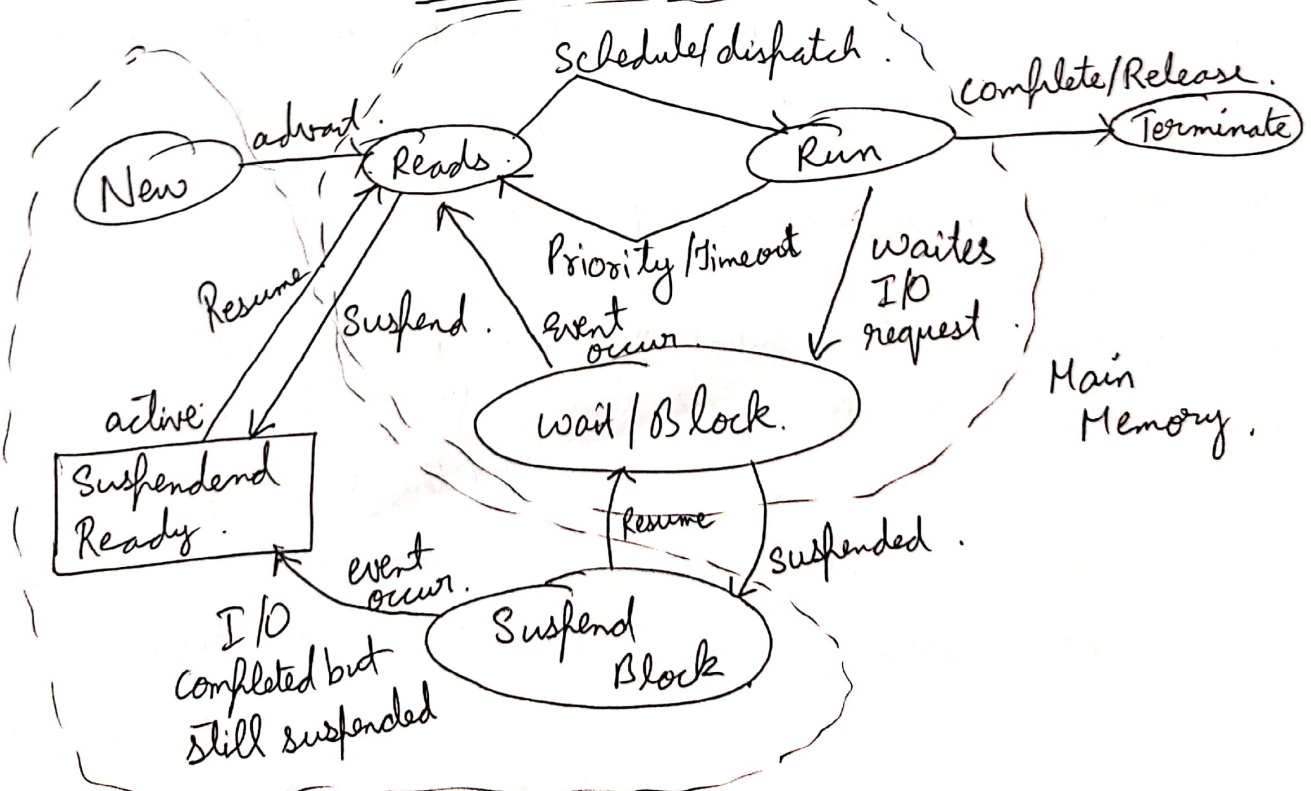 Schedule/dispatch.
complete/Release.
admit.
New
Ready.
Run
Terminate
Priority/Timeout
waites
I/O
request.
Resume
Suspend.
Event
occur
Main
Memory.
active.
wait/Block.
Suspendend
Ready.
Resume
suspended.
event
occur.
I/O
completed but
still suspended
Suspend
Block